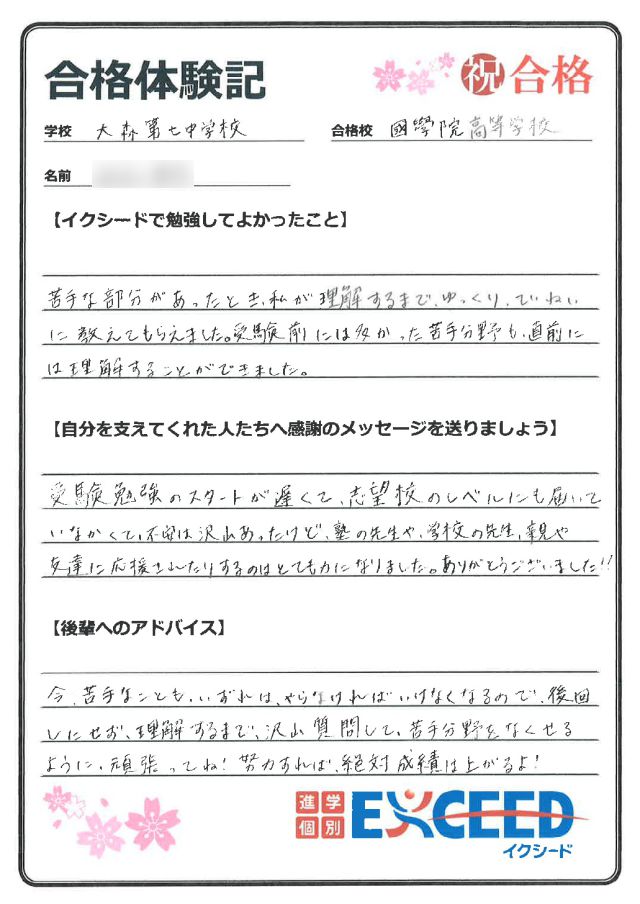 合格体験記
祝 合格
学校 大森第七中学校 合格校 國學院高等学校
名前
【イクシードで勉強してよかったこと】
苦手な部分があったとき、私が理解するまで、ゆっくり、ていねい
に教えてもらえました。受験前には多かった苦手分野も、直前に
は理解することができました。
【自分を支えてくれた人たちへ感謝のメッセージを送りましょう】
受験勉強のスタートが遅くて、志望校のレベルにも届いて
いなかくて、不安は沢山あったけど、塾の先生や、学校の先生、親や
友達に応援されたりするのはとても力になりました。ありがとうございました!!
【後輩へのアドバイス】
今、苦手なことも、いずれは、やらなければいけなくなるので、後回
しにせず、理解するまで、沢山質問して、苦手分野をなくせる
ように、頑張ってね!努力すれば、絶対成績は上がるよ!
進学
個別
EXCEED
イクシード